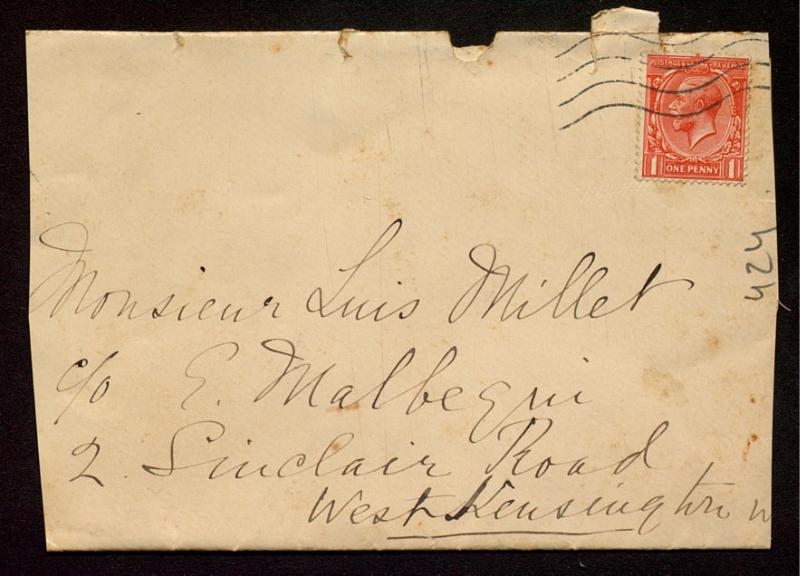 POSTAGE & REVENUE
1 ONE PENNY 1
424
Monsieur Luis Millet
c/o E. Malbequi
2. Sinclair Road
West Kensington W